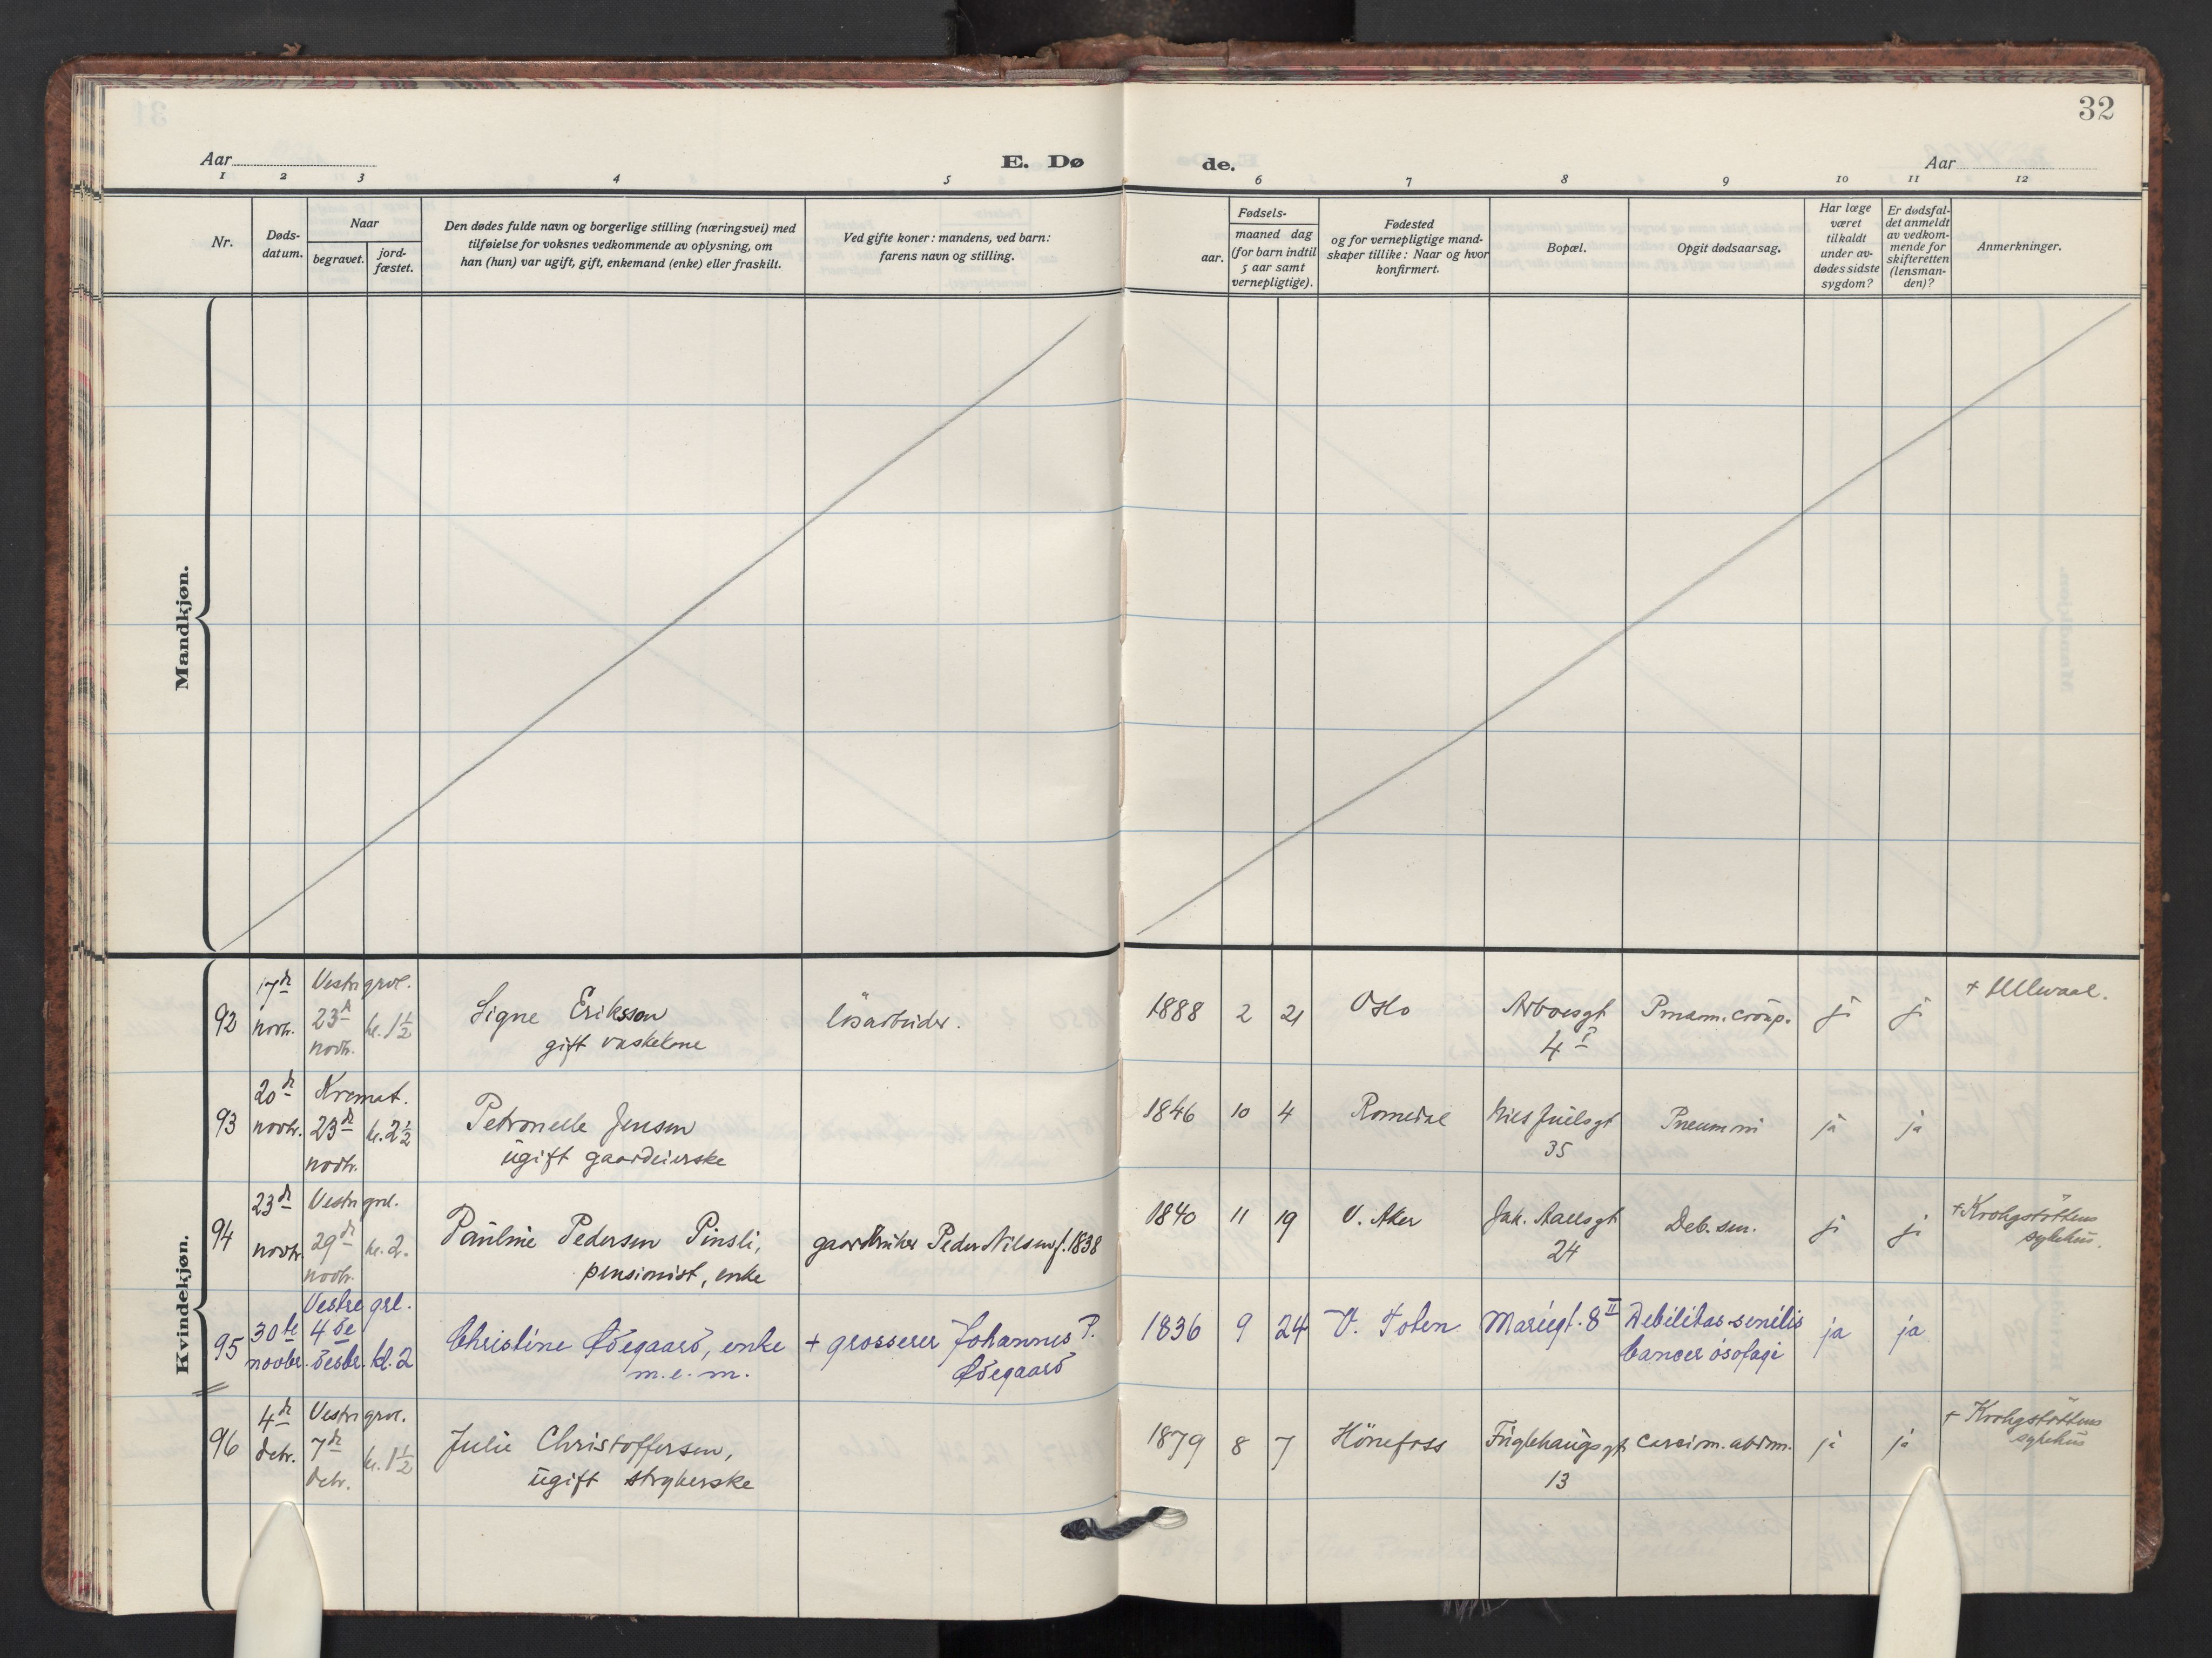 32
Aar
E. Dø
de.
Aar
1 2 3 4 5 6 7 8 9 10 11 12
Nr.
Døds-
datum.
Naar
begravet.
jord-
fæstet.
Den dødes fulde navn og borgerlige stilling (næringsvei) med
tilføielse for voksnes vedkommende av oplysning, om
han (hun) var ugift, gift, enkemand (enke) eller fraskilt.
Ved gifte koner: mandens, ved barn:
farens navn og stilling.
Fødsels-
aar.
maaned dag
(for barn indtil
5 aar samt
vernepligtige).
Fødested
og for vernepligtige mand-
skaper tillike: Naar og hvor
konfirmert.
Bopæl.
Opgit dødsaarsag.
Har læge
været
tilkaldt
under av-
dødes sidste
sygdom?
Er dødsfal-
det anmeldt
av vedkom-
mende for
skifteretten
(lensman-
den)?
Anmerkninger.
Mandkjøn.
Kvindekjøn.
92
17de
novbr.
Vestre grvl.
23de
novbr.
kl. 1½
Signe Eriksson
gift vaskekone
løsarbeider.
1888 2 21
Oslo
Arboesgt
4 I
Pneum. croup.
ja
ja
+ Ullevaal.
93
20de
novbr.
Kremat.
23de
novbr.
kl. 2½
Petronelle Jensen
ugift gaardeierske
1846 10 4
Romedal
Niels Juelsgt
35
Pneumoni
ja
ja
94
23de
novbr.
Vestre grvl.
29de
novbr.
kl. 2.
Pauline Pedersen Pinsli,
pensionist, enke
gaardbruker Peder Nilsen f. 1838
1840 11 19
V. Aker
Jak. Aallsgt
24
Deb. sen.
ja
ja
+ Krohgstøttens
sykehus.
95
30te
novbr.
Vestre grl.
4de
desbr.
kl. 2
Christine Ødegaard, enke
m. e. m.
+ grosserer Johannes P.
Ødegaard
1836 9 24
V. Toten
Mariegt. 8 II
Debilitas senilis
Cancer øsofagi
ja
ja
96
4de
debr.
Vestre grvl.
7de
debr.
kl. 1½
Julie Christoffersen,
ugift strykerske
1879 8 7
Hönefoss
Fuglehaugsgt
13
Carcinom. abdom.
ja
ja
+ Krohgstøttens
sykehus